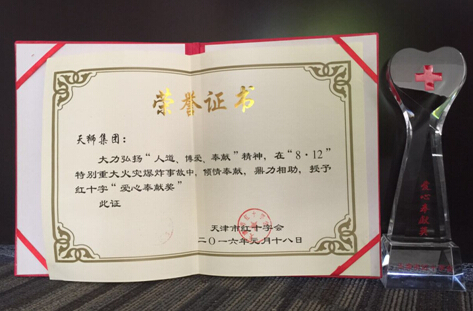 荣誉证书
天狮集团：
大力弘扬“人道、博爱、奉献”精神，在“8·12”
特别重大火灾爆炸事故中，倾情奉献，鼎力相助，授予
红十字“爱心奉献奖”
此证
天津市红十字会
二〇一六年元月十八日
爱心奉献奖